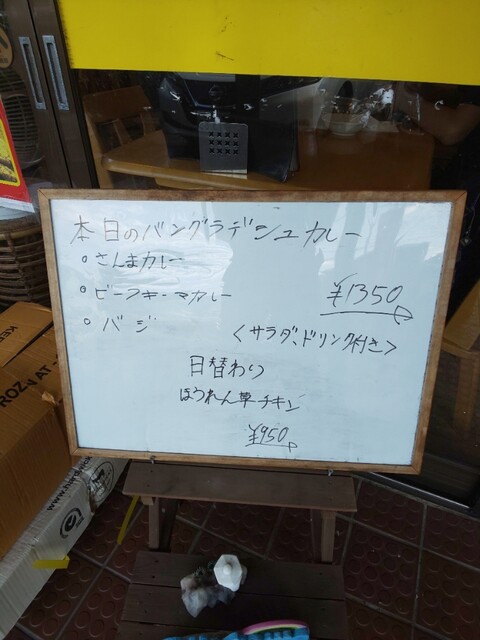 本日のバングラデシュカレー
○ さんまカレー
○ ビーフキーマカレー
¥1350
○ バジ
<サラダ、ドリンク付き>
日替わり
ほうれん草チキン
¥950